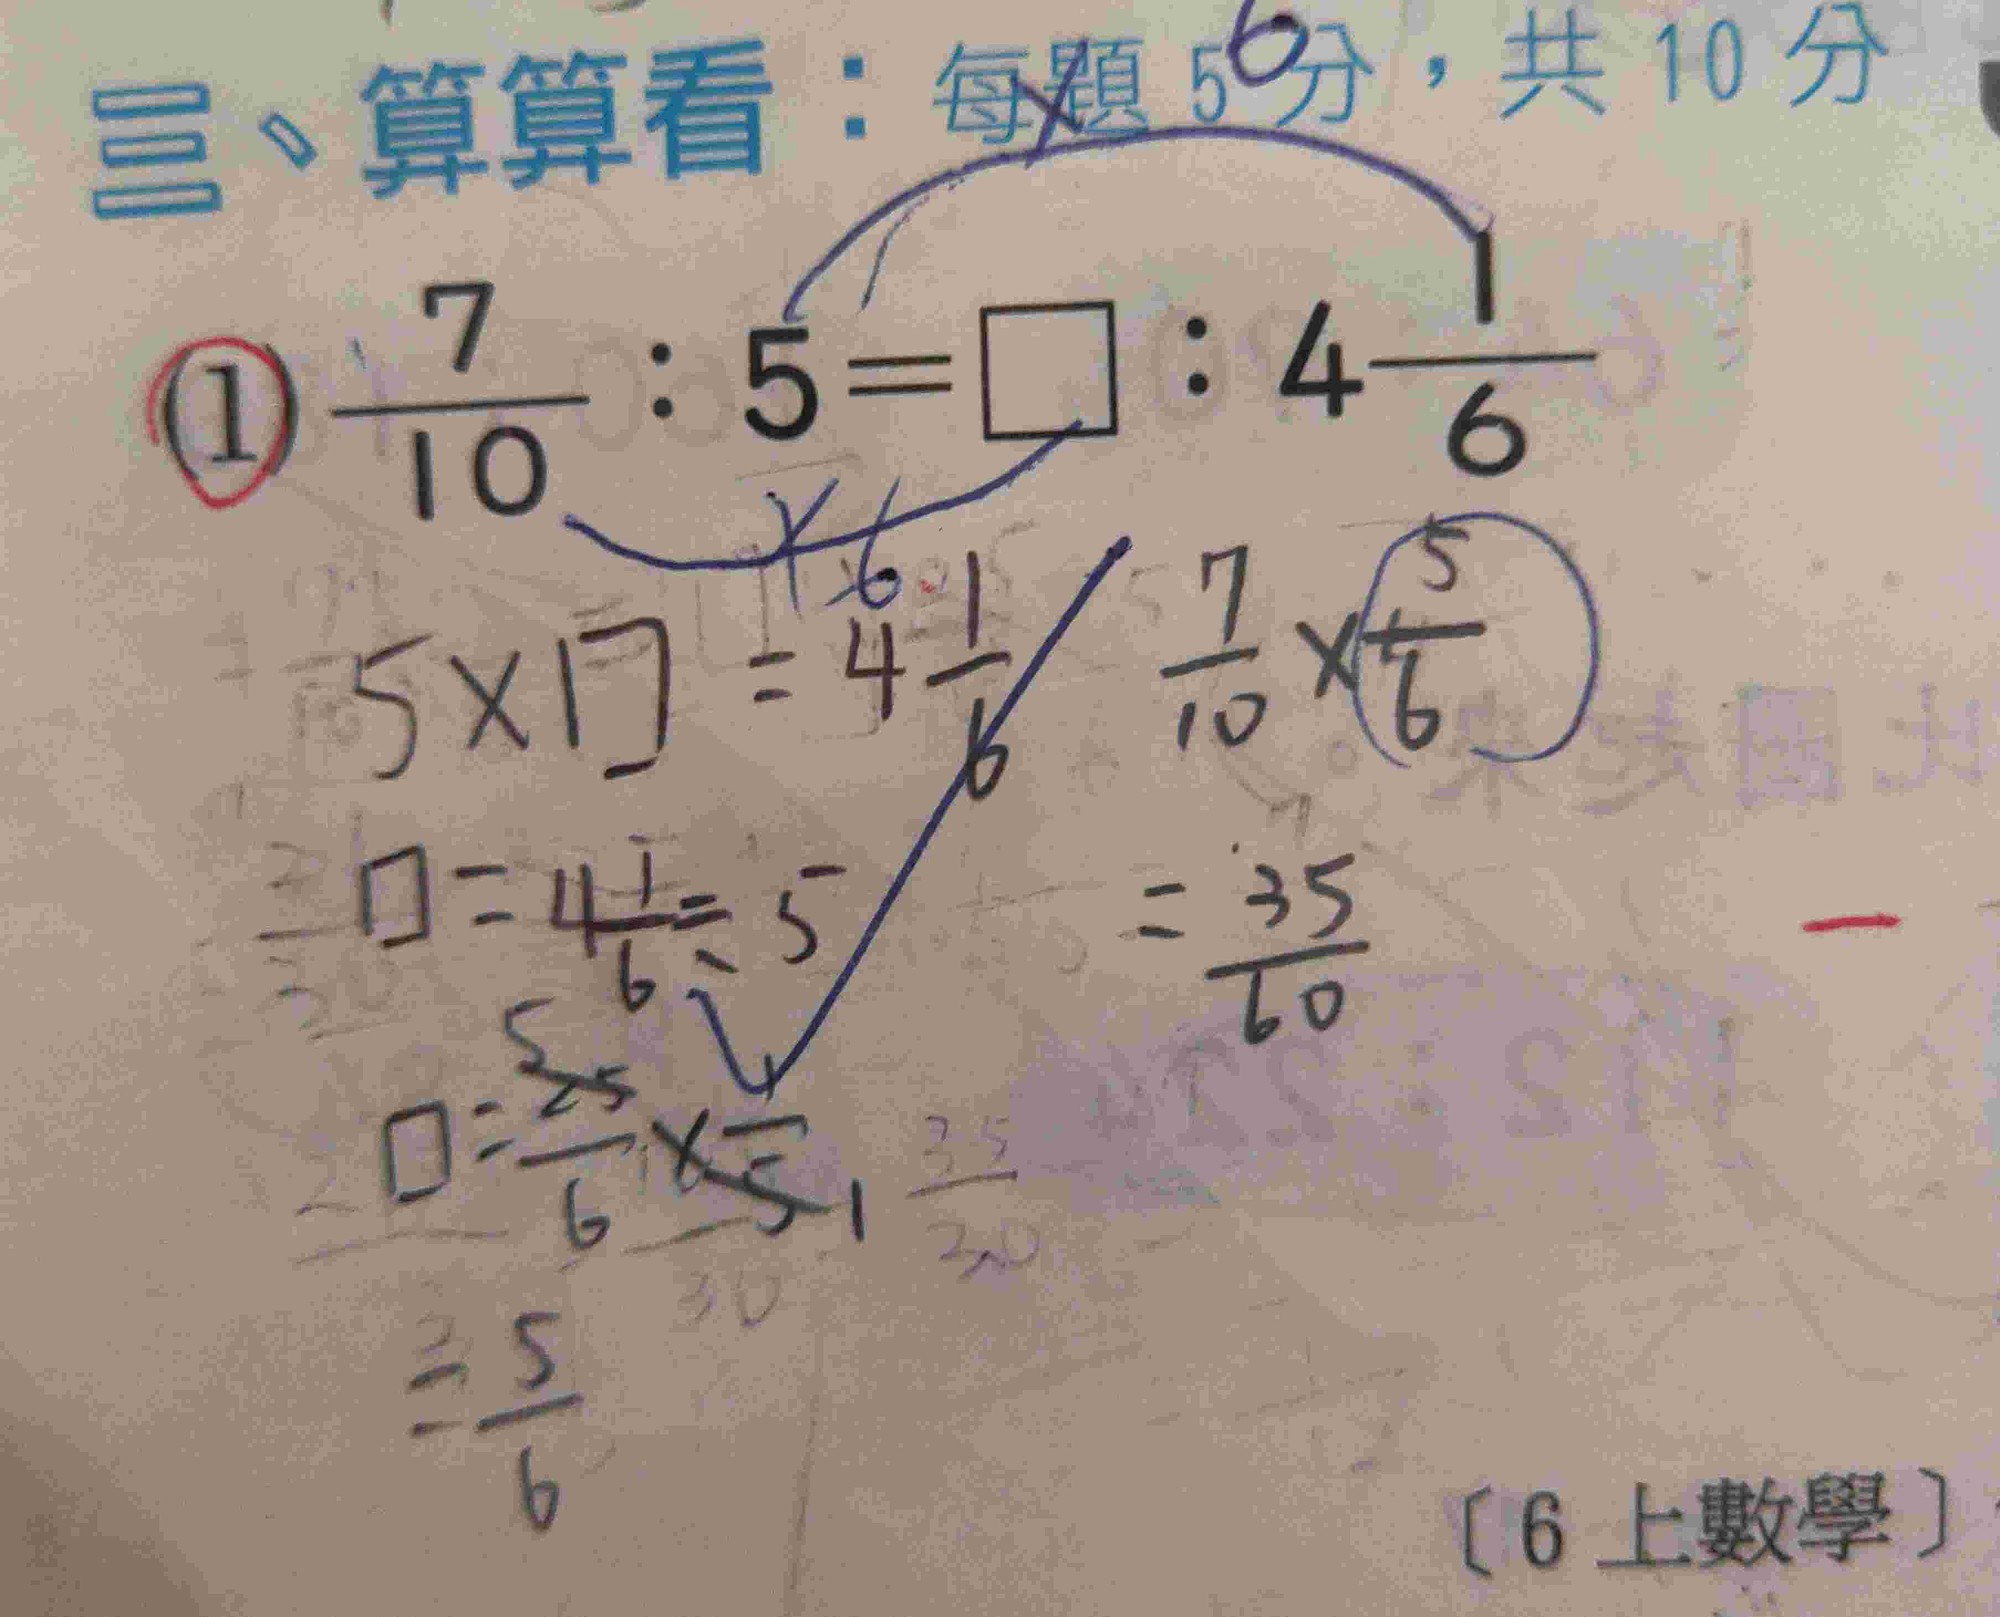 三、算算看：每題 5 分，共 10 分
× 6
① 7/10 : 5 = □ : 4 1/6
× 6
5 × □ = 4 1/6
□ = 4 1/6 ÷ 5
□ = 25/6 × 1/5
5 1
= 5/6
7/10 × 5/6
= 35/60
〔6 上數學〕